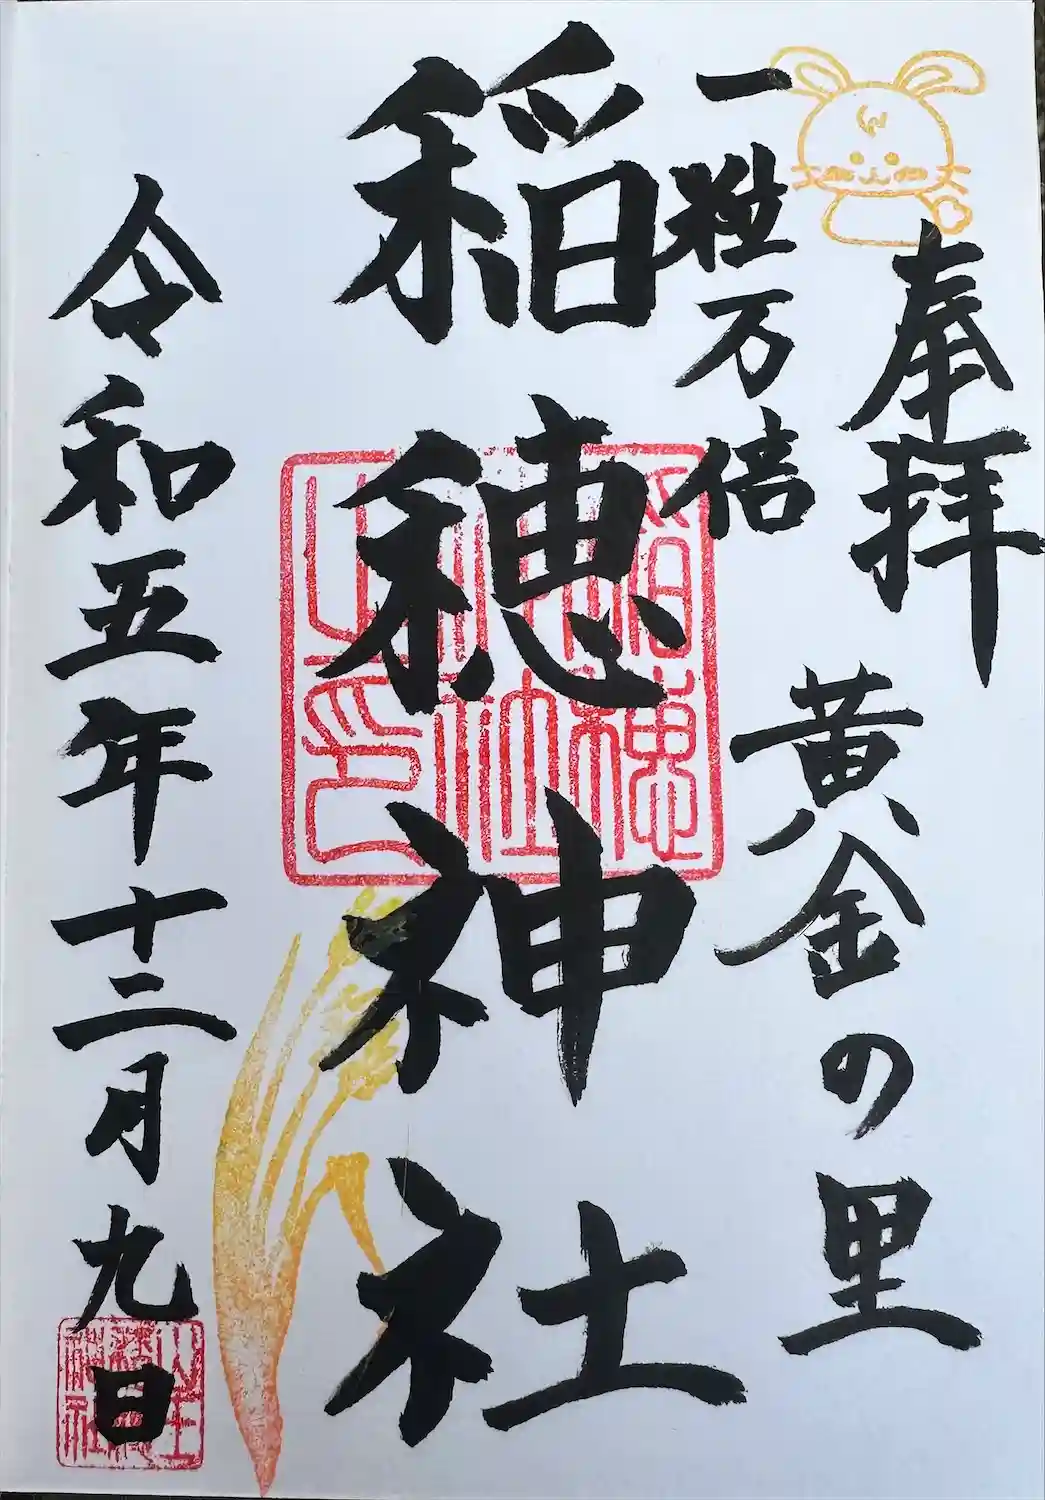 奉拝 黄金の里
一粒万倍
稲穂神社
令和五年十二月九日
稲穂
神社
之印